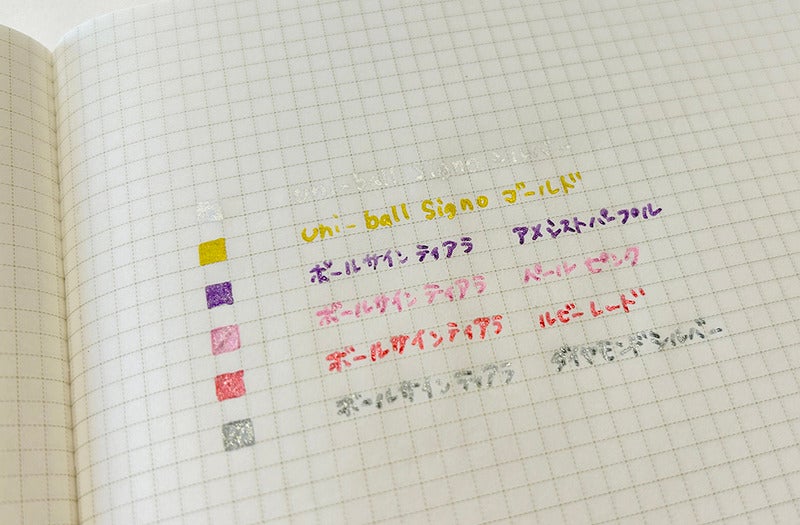 uni-ball Signo
uni-ball Signo ゴールド
ボールサイン ティアラ アメシストパープル
ボールサイン ティアラ ペール ピンク
ボールサインティアラ ルビーレッド
ボールサインティアラ ダイヤモンドシルバー